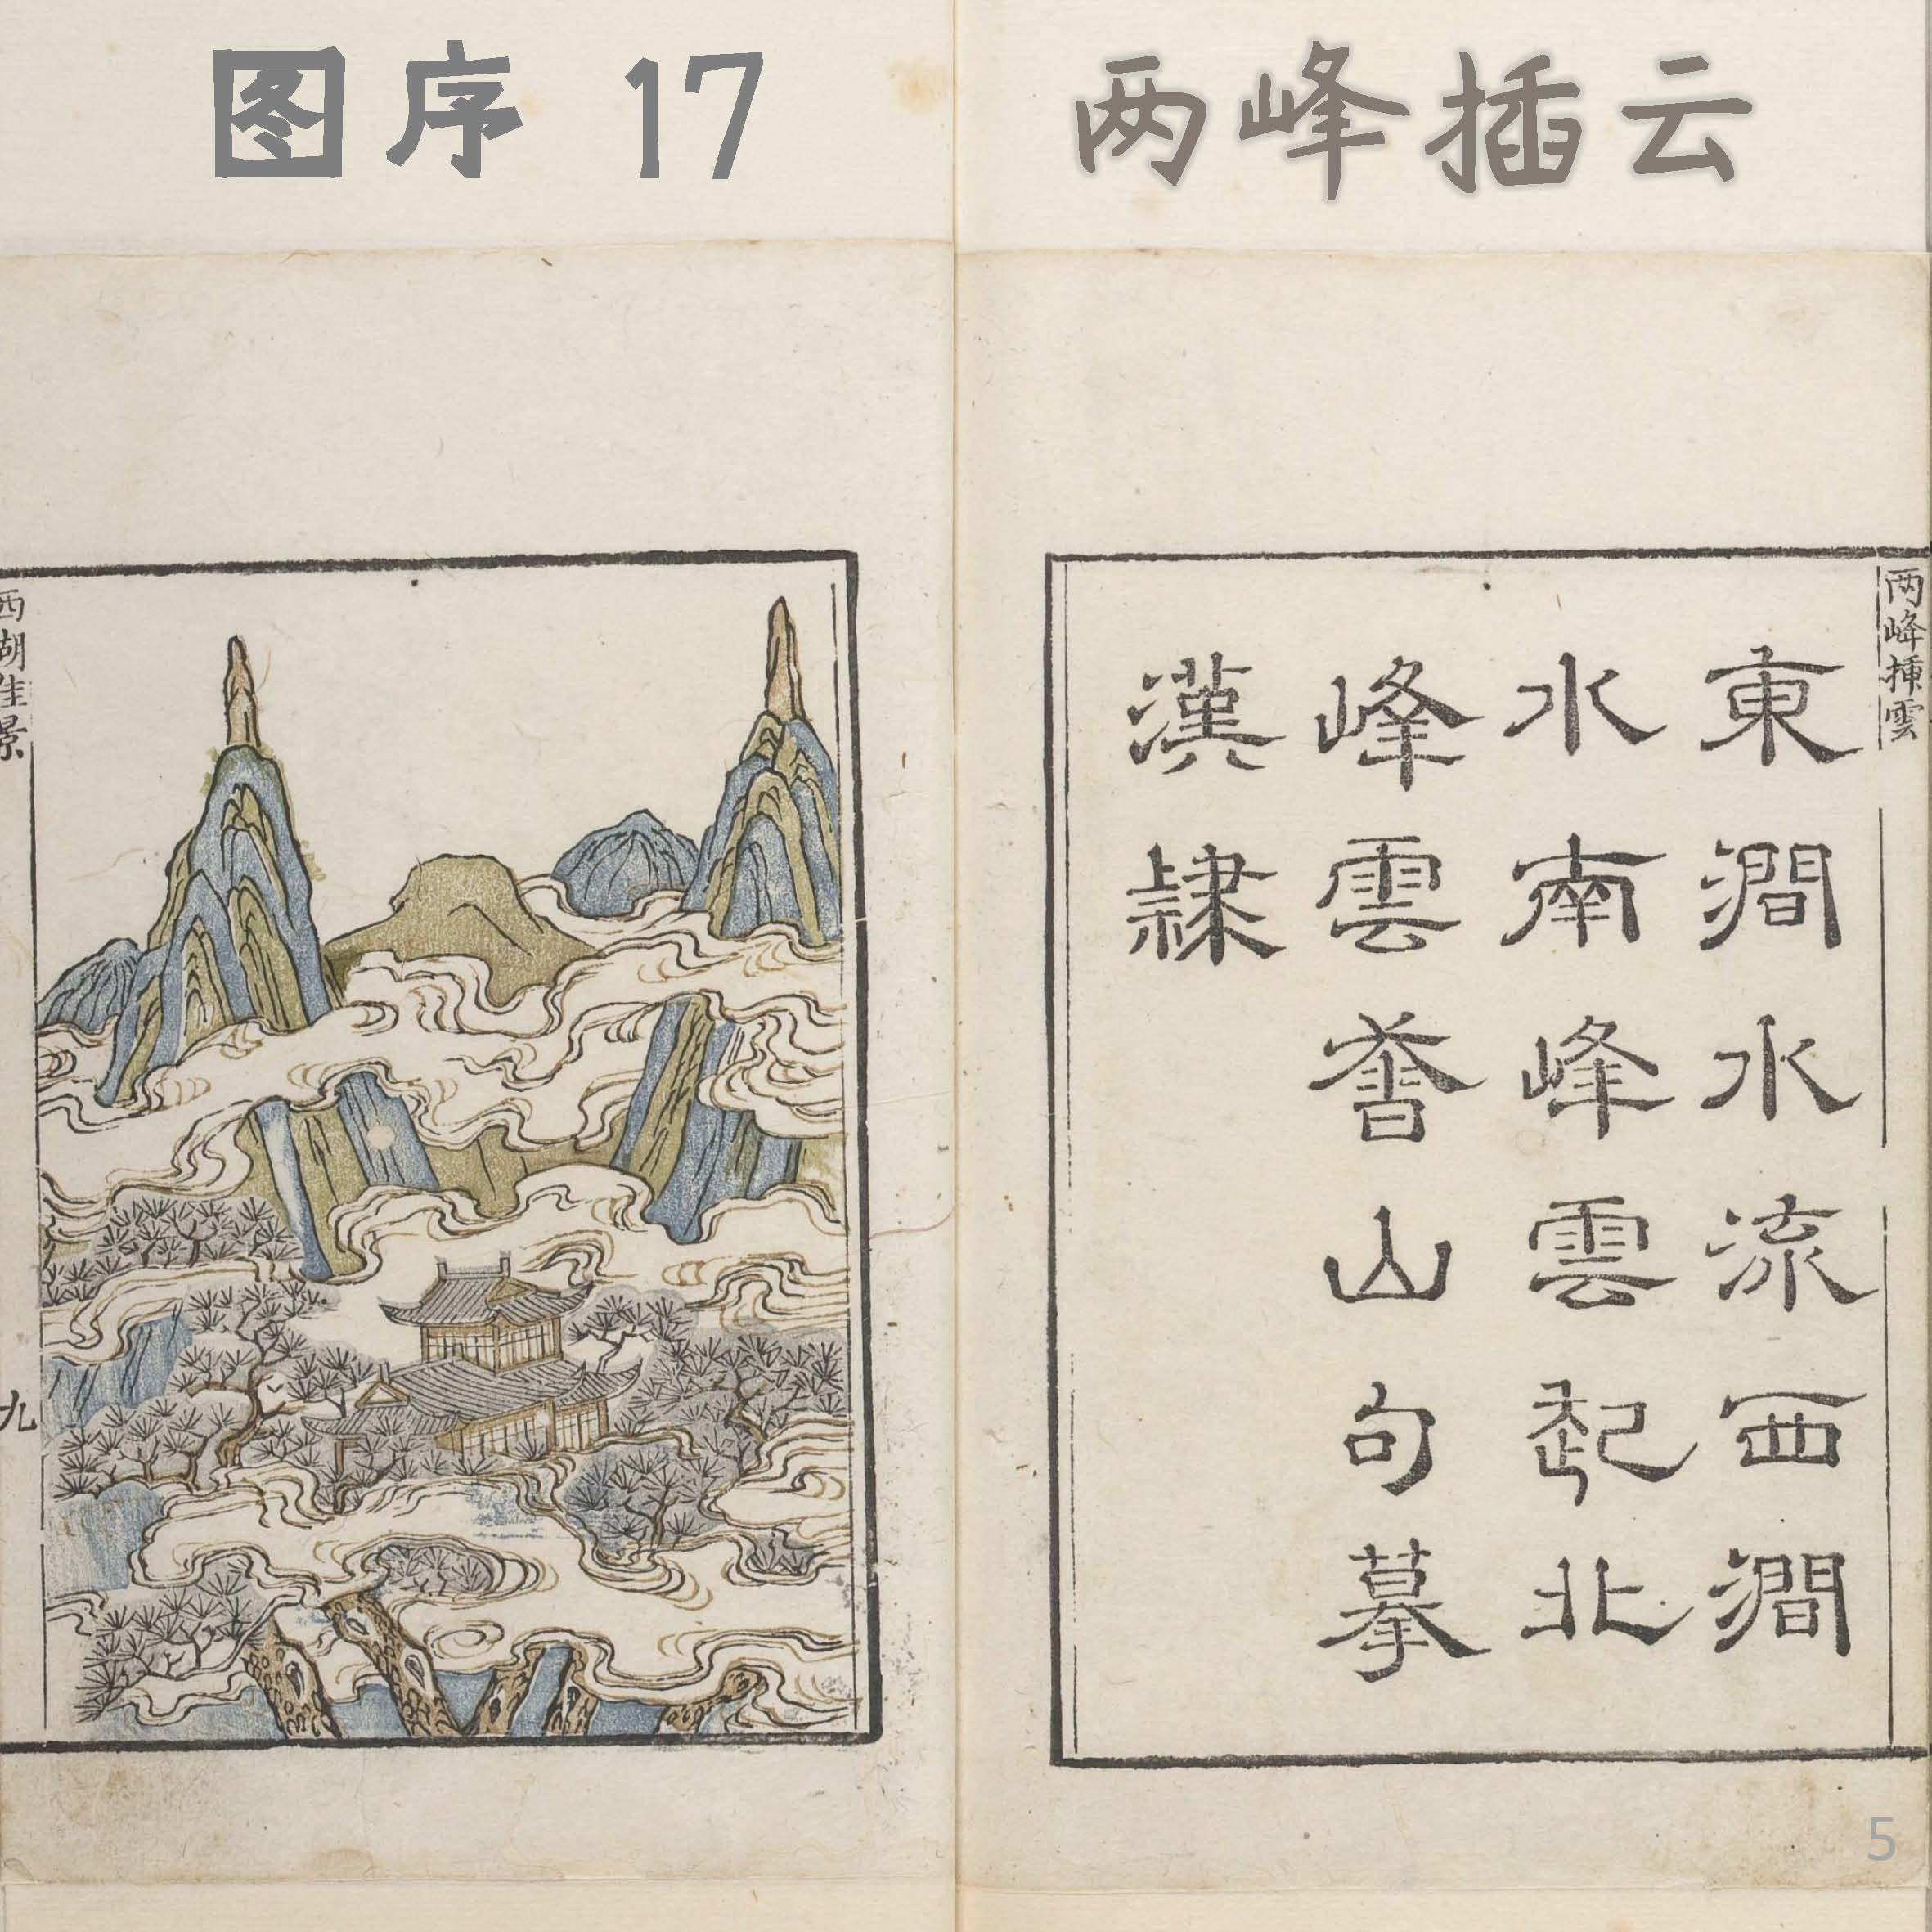 图序 17
两峰插云
两峰挿雲
東澗水流西澗
水南峰雲起北
峰雲香山句摹
漢隸
西湖佳景
九
5